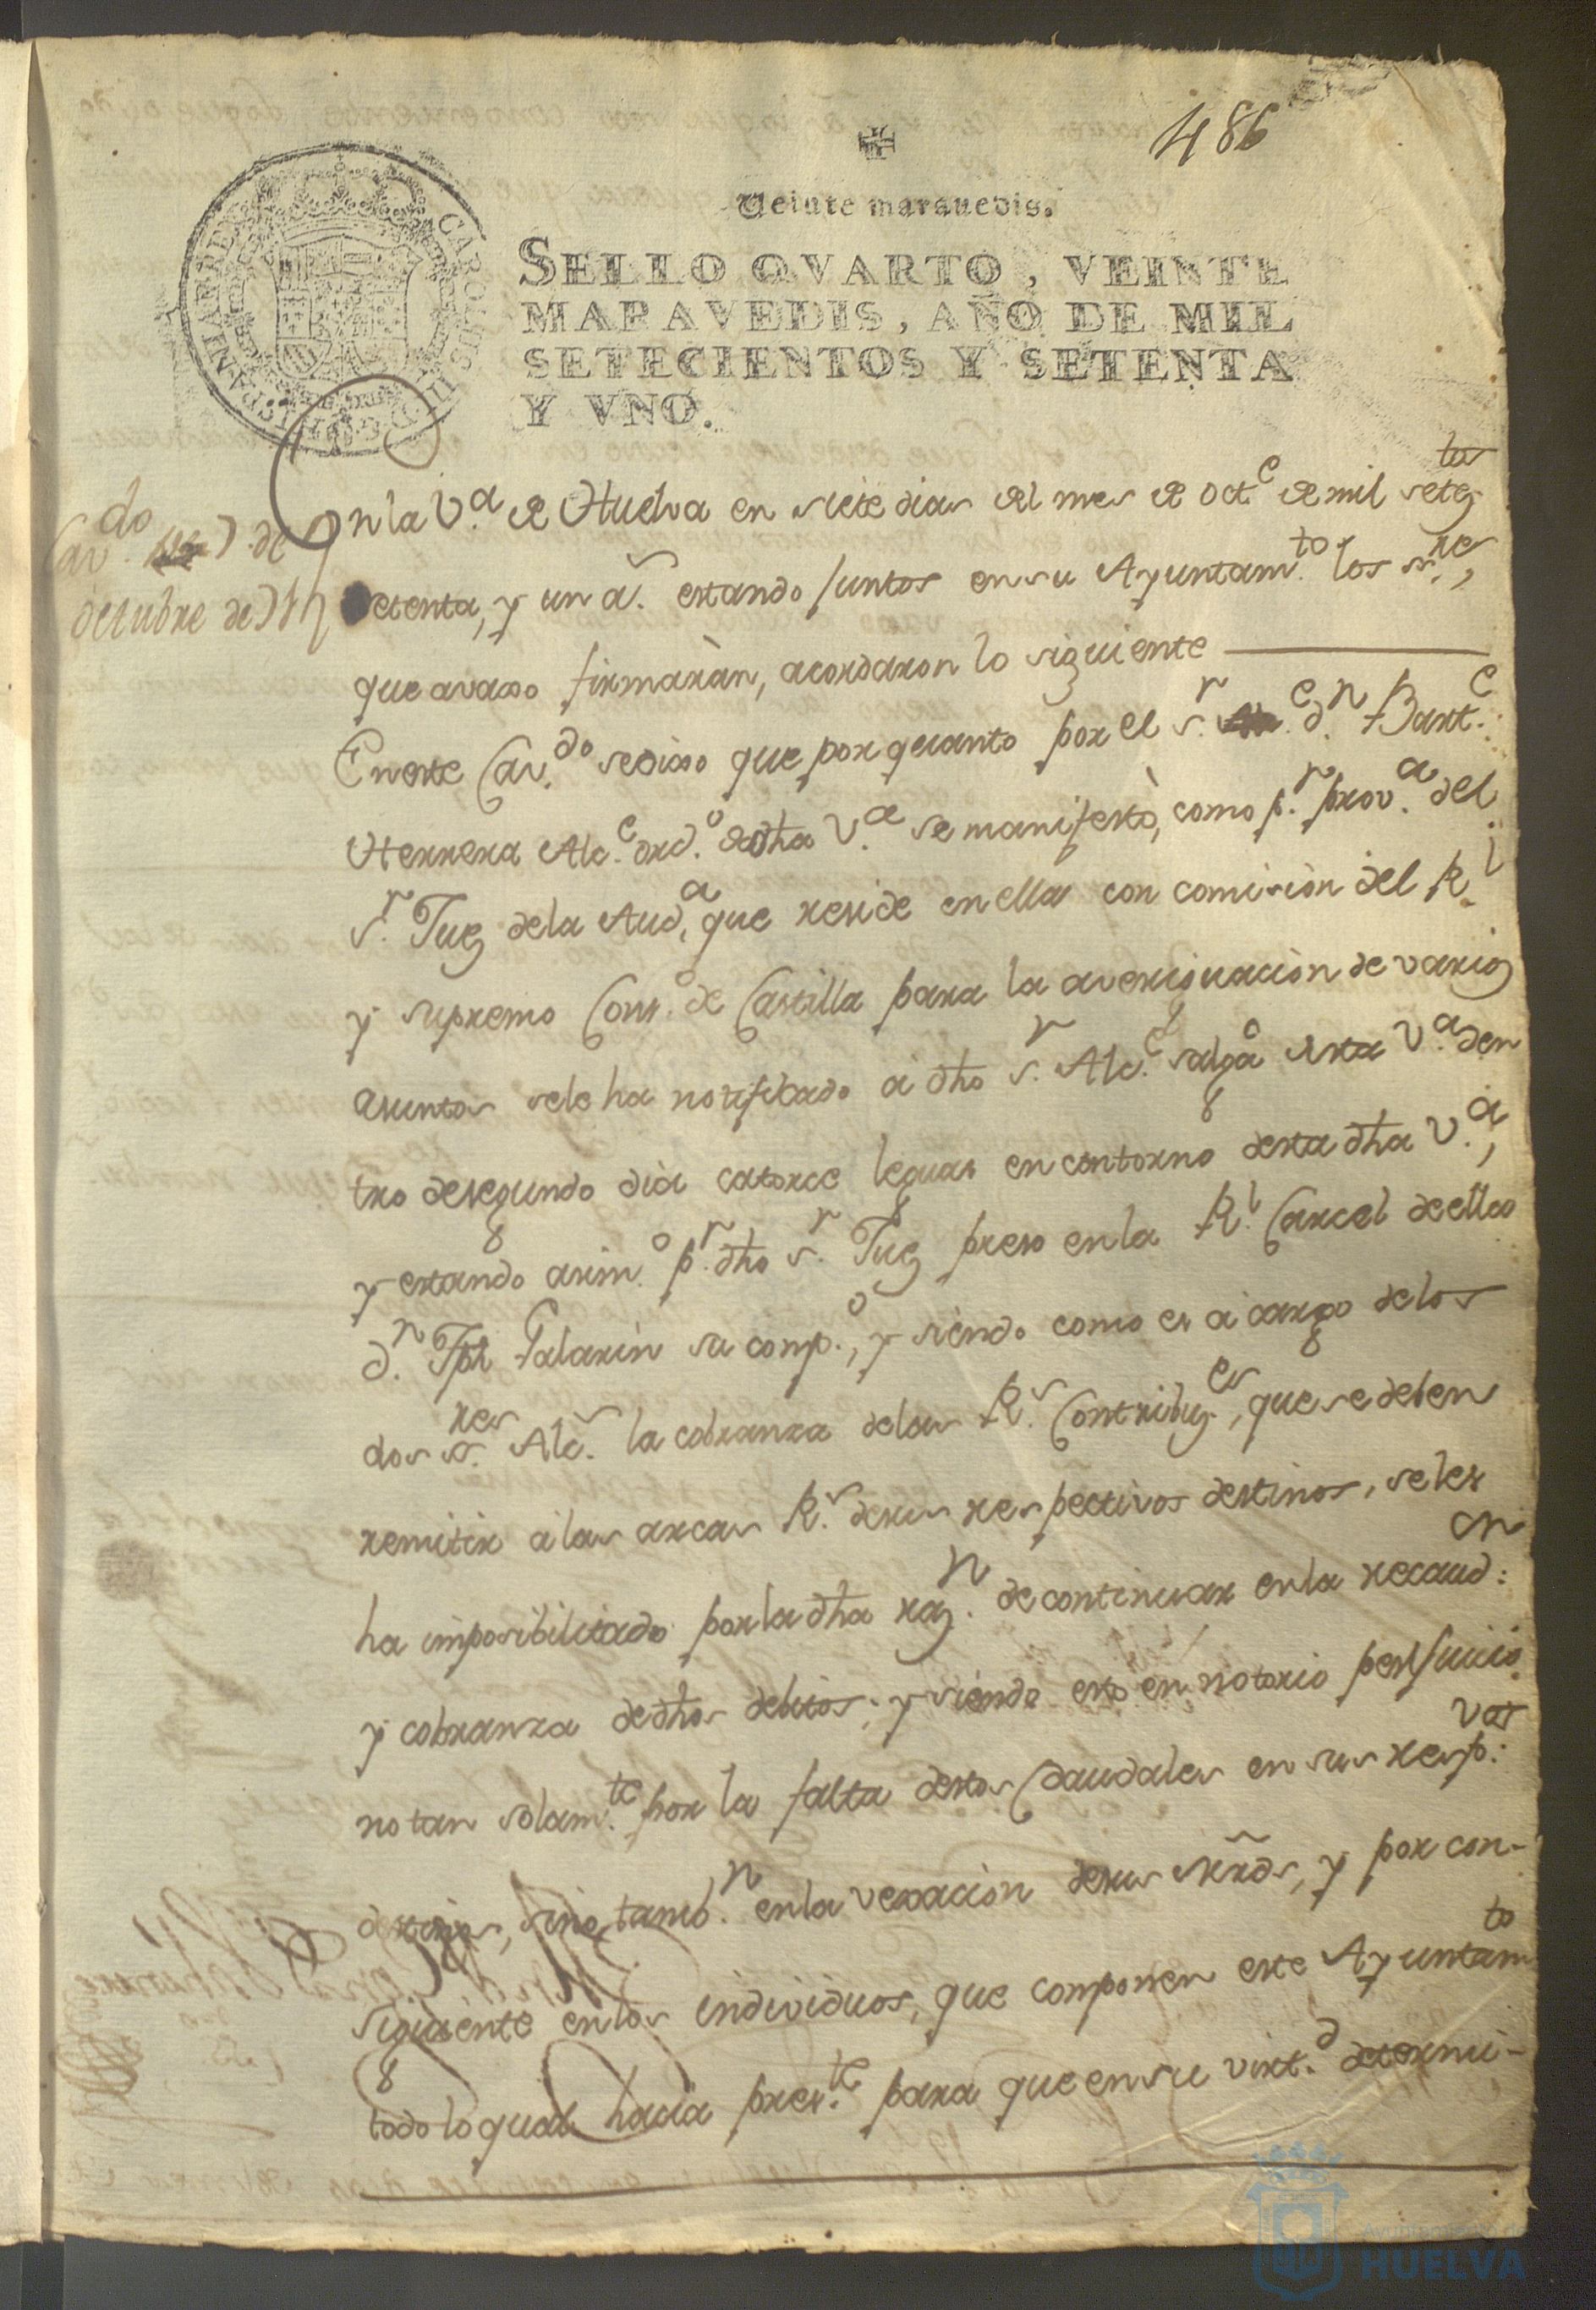 486
Veinte maravedis.
SELLO QVARTO, VEINTE
MARAVEDIS, AÑO DE MIL
SETECIENTOS Y SETENTA
Y VNO.
CAROLUS III D. G. HISPANIAR
Cav.do 7 de
octubre de 71
En la V.a de Huelva en siete dias del mes de Oct.e de mil seteztos
setenta, y un a.s estando juntos en su Ayuntam.to los s.res,
que avaxo firmaràn, acordaron lo siguiente
En este Cav.do se dixo que por quanto por el s.r d.n Bart.e
Herrera Alc.e ord.o de dha V.a se manifestò, como p.r prov.a del
s.r Juez de la Aud.a que reside en ella con comisiòn del R.l
y supremo Cons.o de Castilla para la averiguaciòn de varios
asuntos se le ha notificado a dho s.r Alc.e salga desta V.a den
tro de segundo dia catorce leguas en contorno desta dha V.a,
y estando asim.o p.r dho s.r Juez preso en la R.l Carcel de ella
d.n Jph Palarin su comp.o, y siendo como es a cargo de los
dos s.res Alc.s la cobranza de las R.s Contribuz.es, que se deben
remitir a las arcas R.s de sus respectivos destinos, se les
ha imposibilitado por la dha raz.n de continuar en la recaud:on
y cobranza de dhos debitos; y siendo esto en notorio perjuicio
no tan solam.te por la falta destos Caudales en sus resp:vos
destinos, sino tamb.n en la vexaciòn de sus , y por con-
siguiente en los individuos, que componen este Ayuntam.to
todo lo qual hacia pres.te para que en su virt.d determi-
Ayuntamiento de
HUELVA